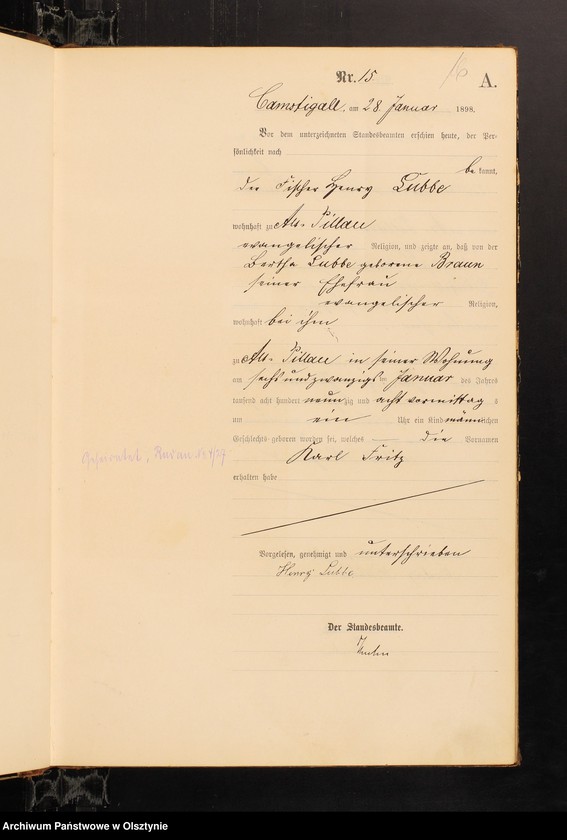 Nr. 15
16
A.
Camstigall, am 28 Januar 1898.
Vor dem unterzeichneten Standesbeamten erschien heute, der Per-
sönlichkeit nach
be kannt,
der Fischer Henry Lubbe
wohnhaft zu Alt-Pillau
evangelischer Religion, und zeigte an, daß von der
Bertha Lubbe geborene Braun
seiner Ehefrau
evangelischer Religion,
wohnhaft bei ihm
zu Alt-Pillau in seiner Wohnung
am sechsundzwanzigsten Januar des Jahres
tausend acht hundert neunzig und acht vormittags
um ein Uhr ein Kind männlichen
Geschlechts geboren worden sei, welches die Vornamen
Karl Fritz
erhalten habe
Vorgelesen, genehmigt und unterschrieben
Henry Lubbe
Der Standesbeamte.
Archiwum Państwowe w Olsztynie